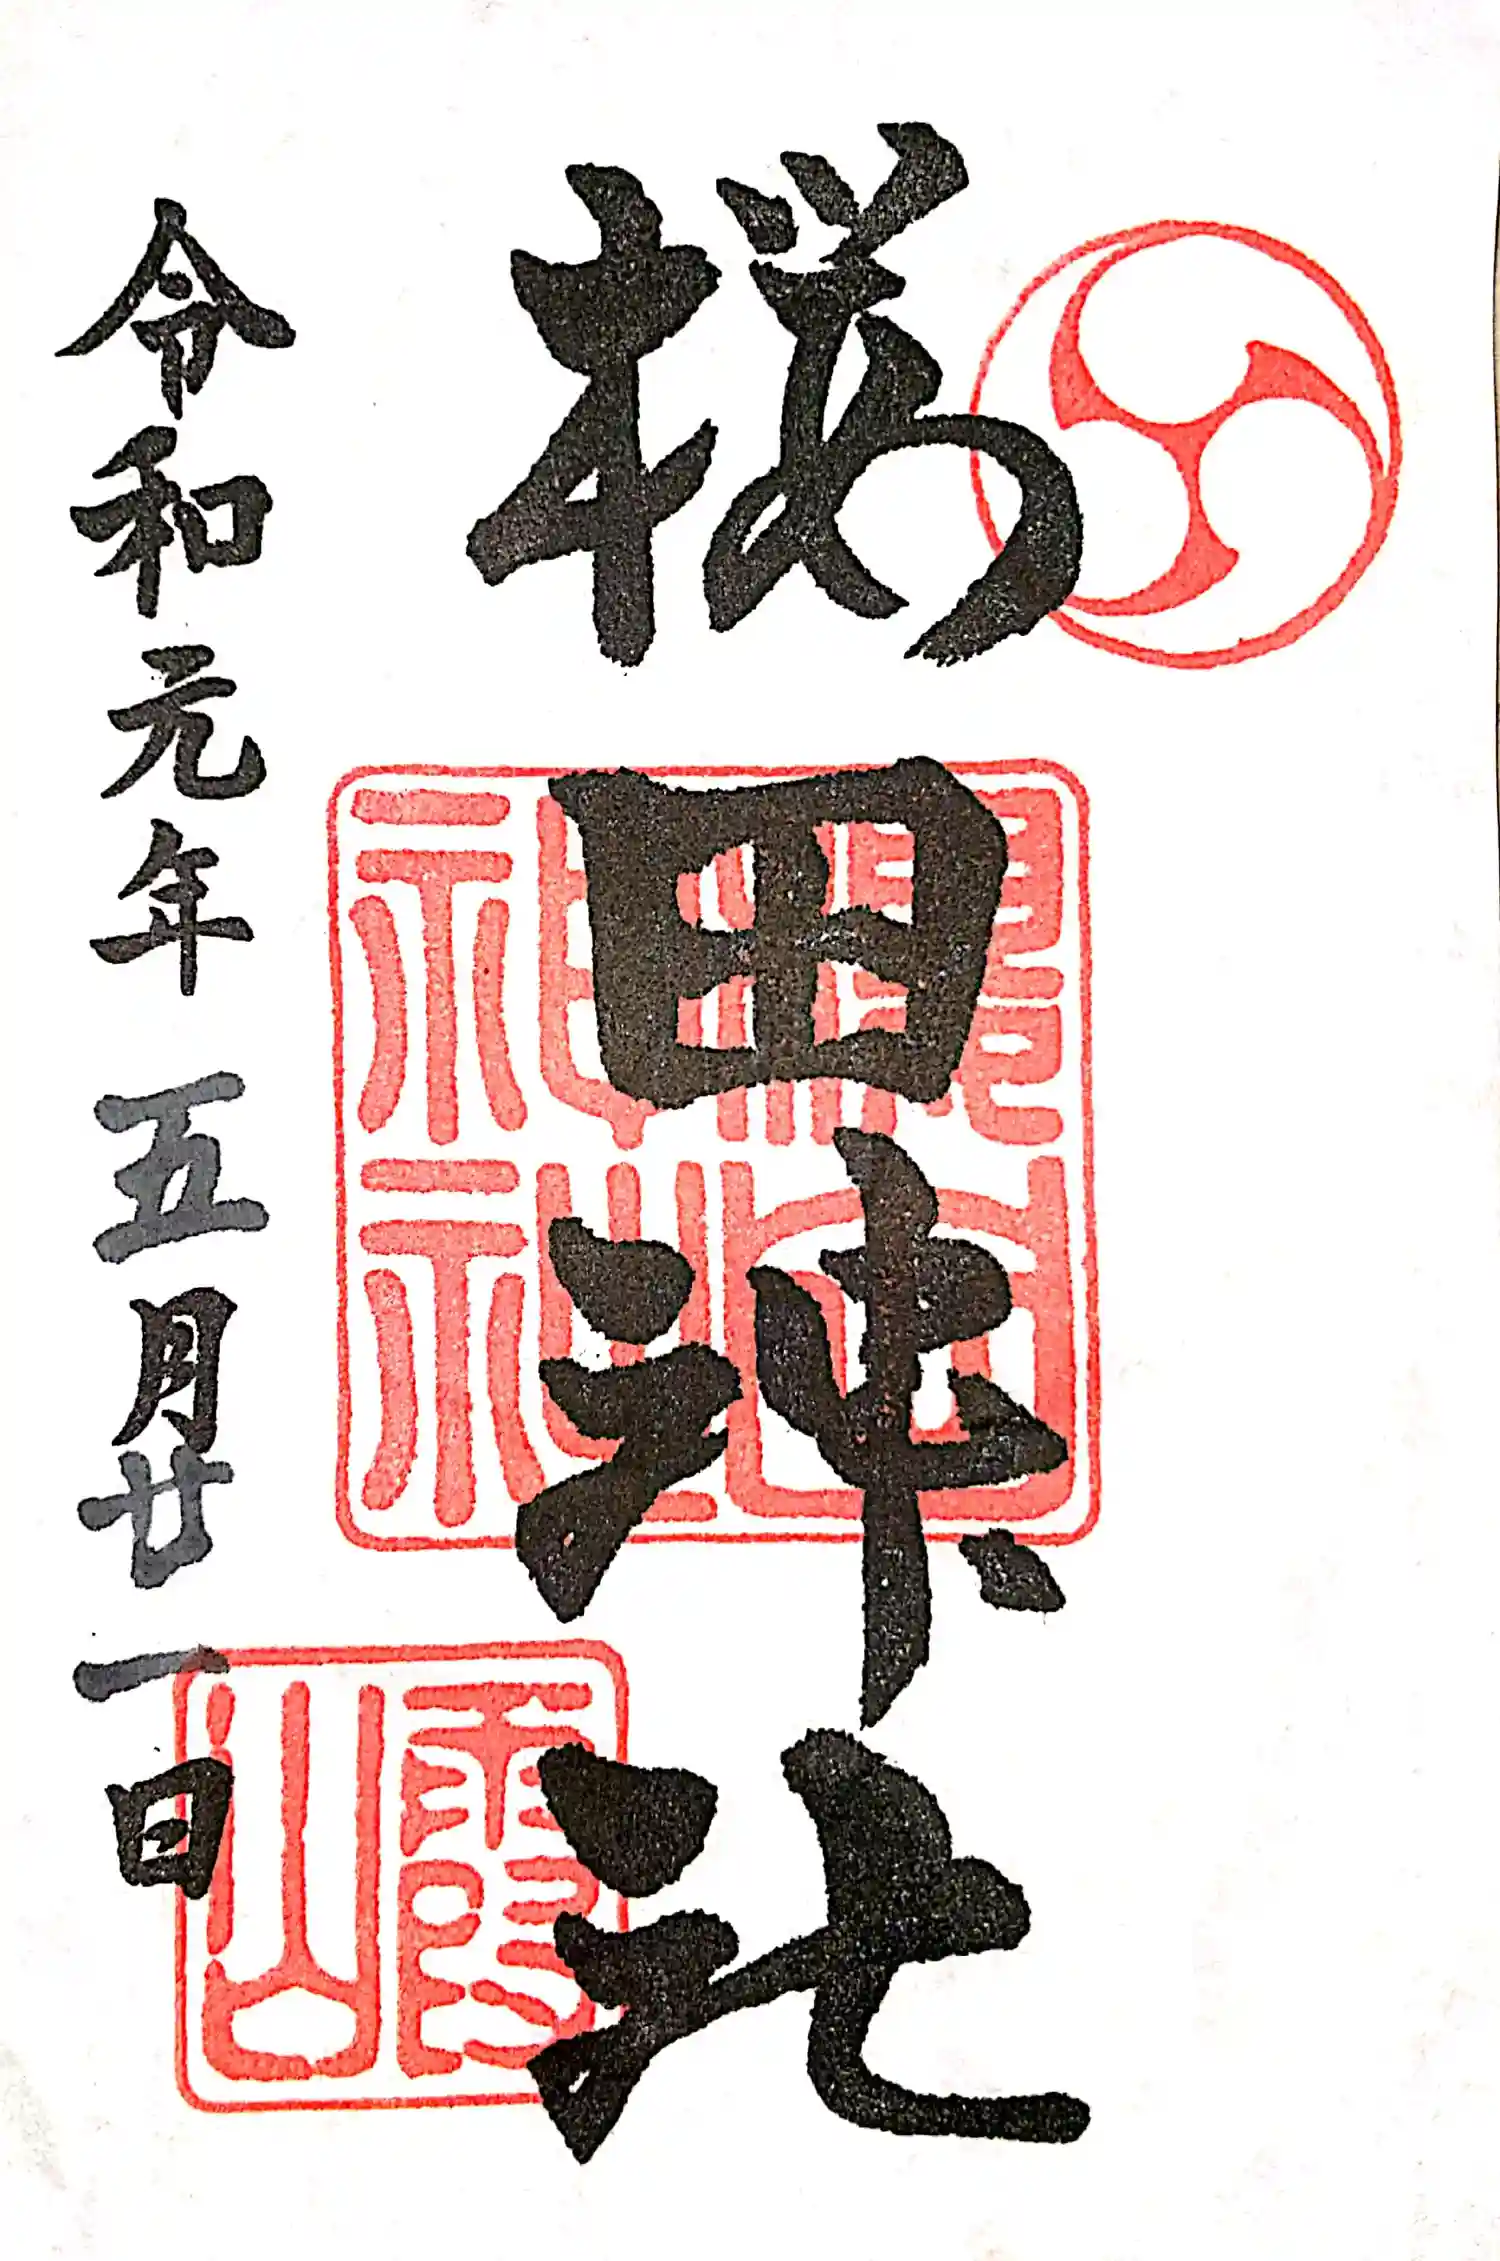 櫻田神社
櫻田神社
霞山
令和元年五月廿一日